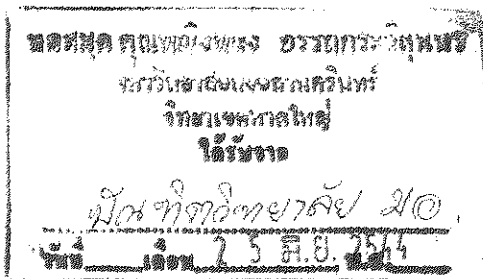 หอสมุด คุณหญิงหลง อรรถกระวีสุนทร
มหาวิทยาลัยสงขลานครินทร์
วิทยาเขตหาดใหญ่
ได้รับจาก
บัณฑิตวิทยาลัย มอ
วันที่ เดือน 25 มิ.ย. 2544